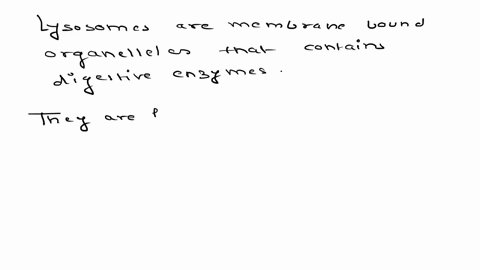 Lysosomes are membrane bound
organelleles that contains
digestive enzymes.
They are